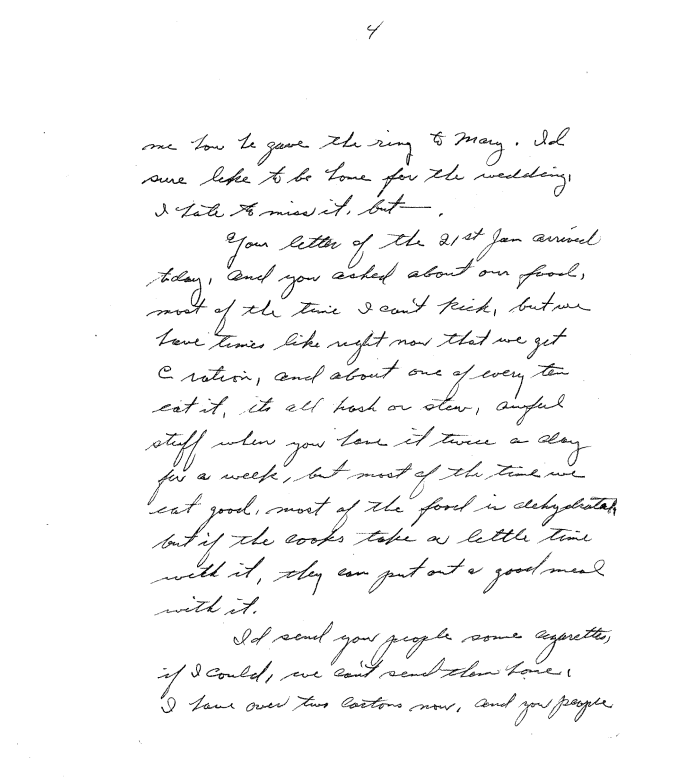 4
me how he gave the ring to Mary. I'd
sure like to be home for the wedding,
I hate to miss it, but — .
Your letter of the 21st Jan arrived
today, and you asked about our food,
most of the time I can't kick, but we
have times like right now that we get
C ration, and about one of every ten
eat it, its all hash or stew, awful
stuff when you have it twice a day
for a week, but most of the time we
eat good, most of the food is dehydrated,
but if the cooks take a little time
with it, they can put out a good meal
with it.
I'd send you people some cigarettes,
if I could, we can't send them home,
I have over two cartons now, and you people